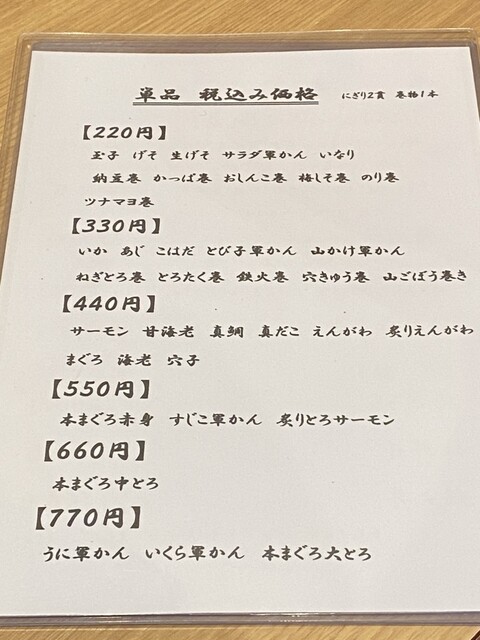 単品 税込み価格 にぎり2貫 巻物1本
【220円】
玉子 げそ 生げそ サラダ軍かん いなり
納豆巻 かっぱ巻 おしんこ巻 梅しそ巻 のり巻
ツナマヨ巻
【330円】
いか あじ こはだ とび子軍かん 山かけ軍かん
ねぎとろ巻 とろたく巻 鉄火巻 穴きゅう巻 山ごぼう巻き
【440円】
サーモン 甘海老 真鯛 真だこ えんがわ 炙りえんがわ
まぐろ 海老 穴子
【550円】
本まぐろ赤身 すじこ軍かん 炙りとろサーモン
【660円】
本まぐろ中とろ
【770円】
うに軍かん いくら軍かん 本まぐろ大とろ